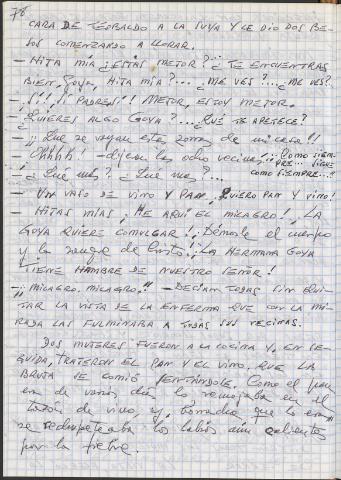 78
CARA DE TEOBALDO A LA SUYA Y LE DIO DOS BE-
SOS COMENZANDO A LLORAR.
- HIJA MÍA ¿ESTÁS MEJOR? ¿TE ENCUENTRAS
BIEN, GOYA, HIJA MÍA?... ¿ME VES?... ¿ME VES?
- ¡SÍ, SÍ PADRE SÍ! MEJOR, ESTOY MEJOR.
- ¿QUIERES ALGO GOYA?... ¿QUÉ TE APETECE?
- ¡¡Que se vayan estas zorras de mi casa!!
- Ohhhh! - dijeron las ocho vecinas. ¡¡Como SIEM-
PRE... SIGUE
- ¿Qué más? ¿Qué más?... COMO SIEMPRE...!!
- UN VASO DE VINO Y PAN. ¡QUIERO PAN Y VINO!
- HIJAS MÍAS, ¡HE AQUÍ EL MILAGRO!, ¡LA
GOYA QUIERE COMULGAR!, ¡Démosle el cuerpo
y la sangre de Cristo!, ¡LA HERMANA GOYA
TIENE HAMBRE DE NUESTRO SEÑOR!
- ¡¡MILAGRO, MILAGRO!! - DECÍAN TODAS SIN QUI-
TAR LA VISTA DE LA ENFERMA QUE CON LA MI-
RADA LAS FULMINABA A TODAS SUS VECINAS.
DOS MUJERES FUERON A LA COCINA Y, EN SE-
GUIDA, TRAJERON EL PAN Y EL VINO, QUE LA
BRUJA SE COMIÓ Como el pan
era de varios días lo remojaba en el
tazón de vino, y, borracha que lo era
se los labios aún calientes
por la fiebre.